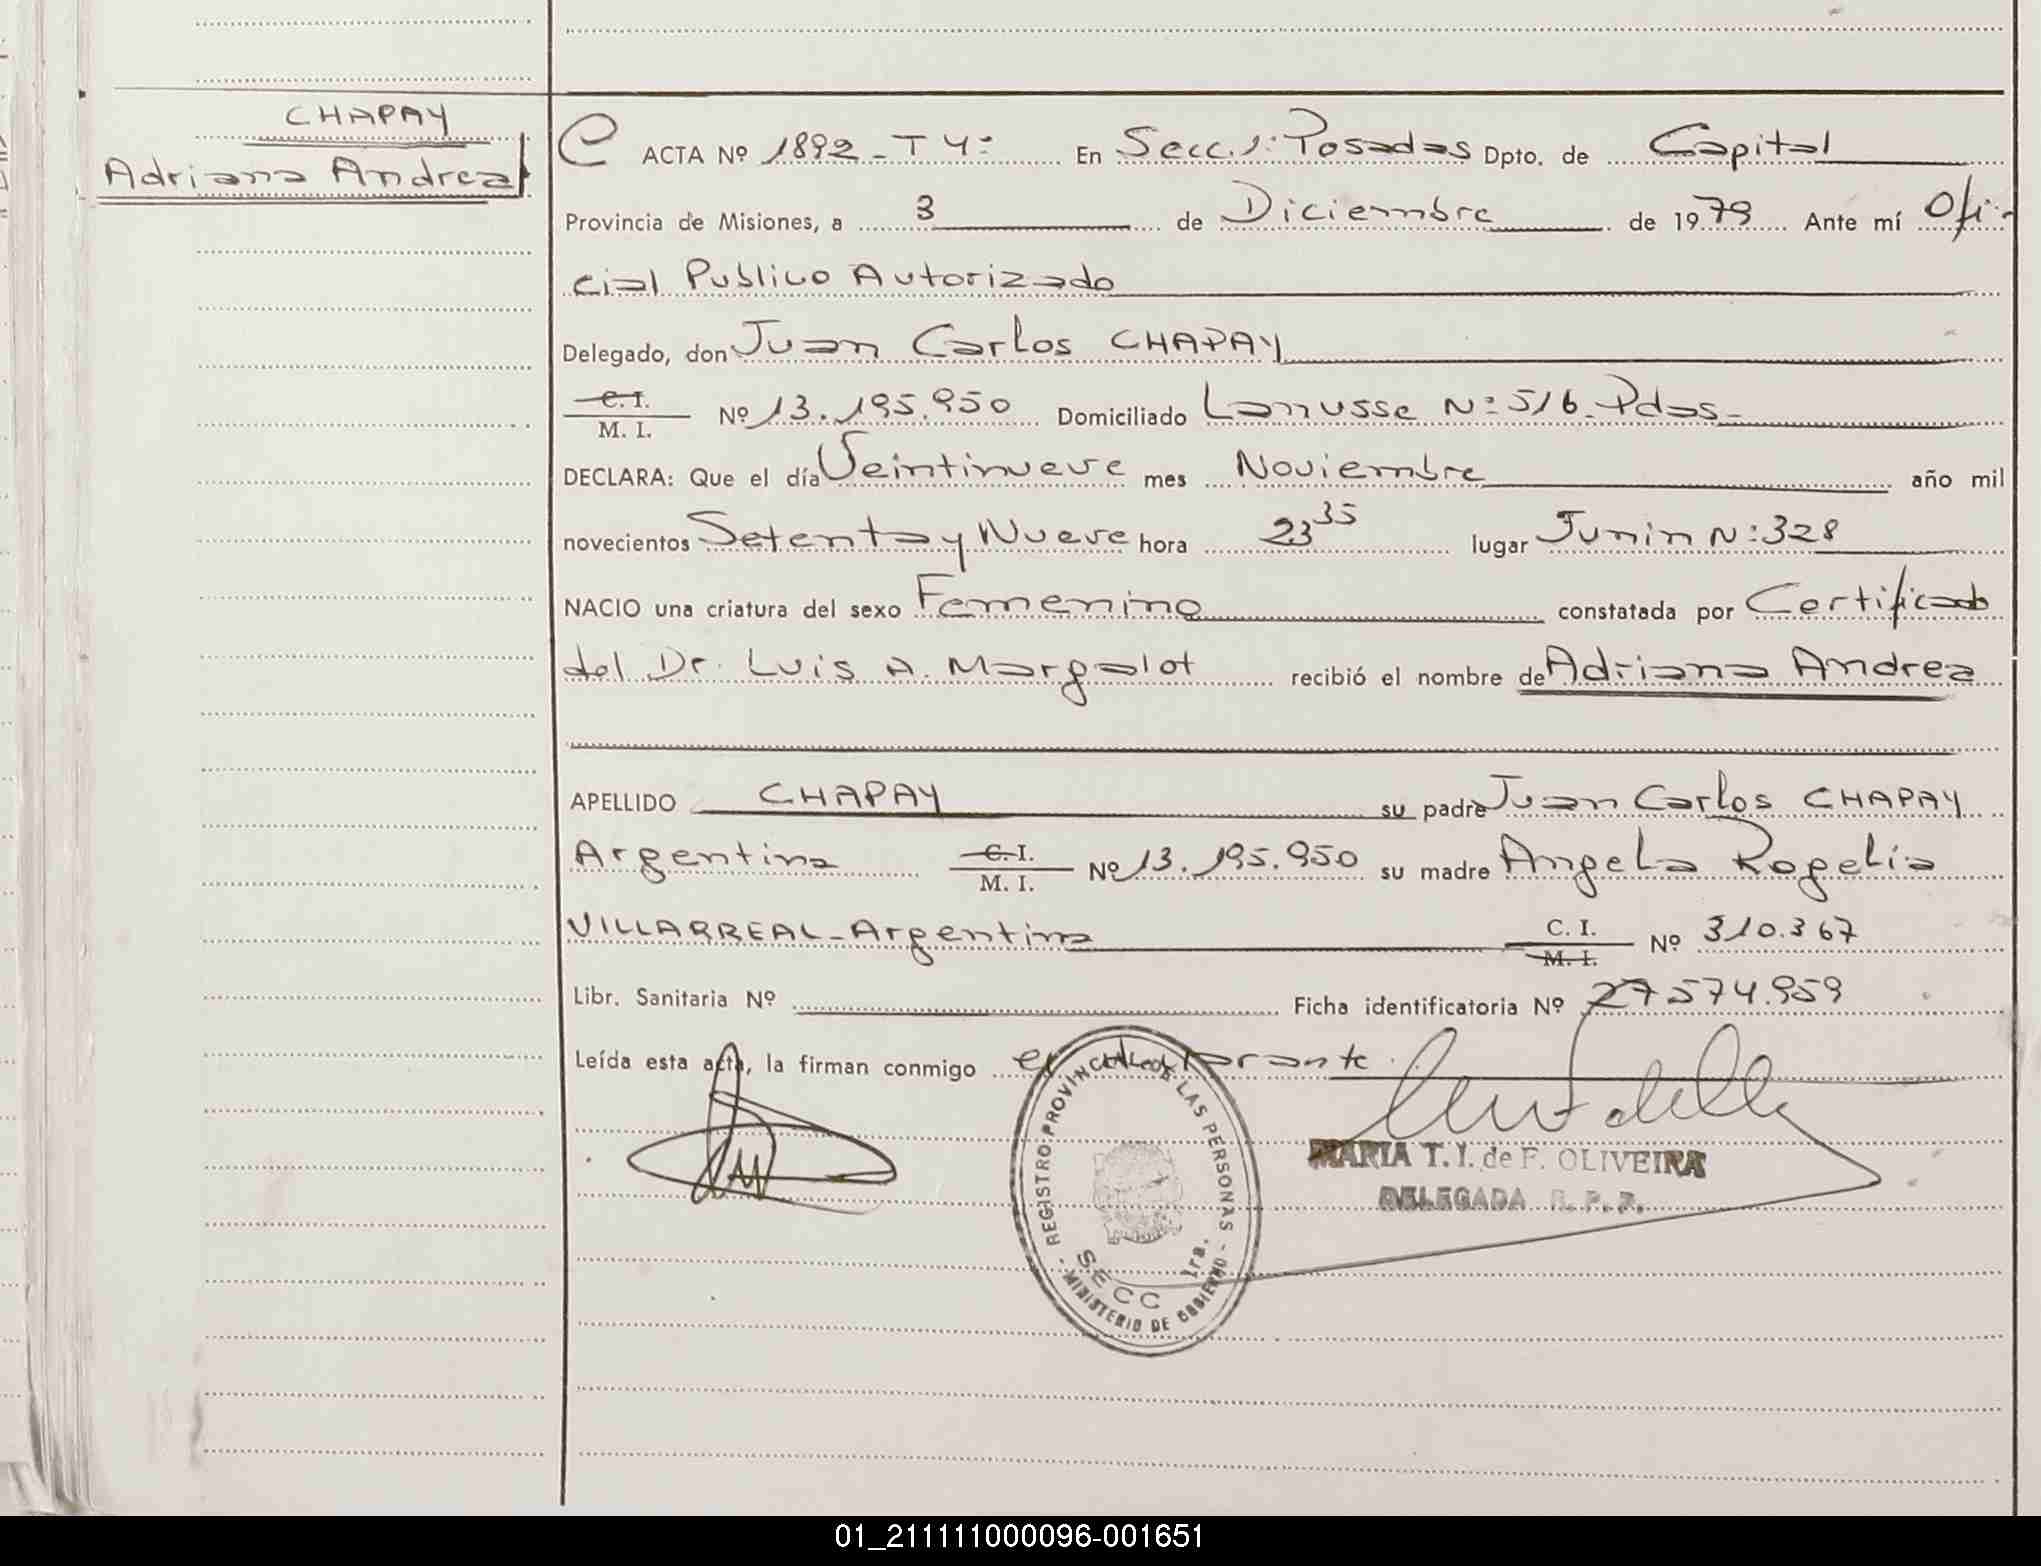 CHAPAY
Adriana Andrea
ACTA Nº 1892-T4º En Secc. 1º Posadas Dpto. de Capital
Provincia de Misiones, a 3 de Diciembre de 1979 Ante mí Ofi-
cial Publico Autorizado
Delegado, don Juan Carlos CHAPAY
C. I.
M. I. Nº 13.195.950 Domiciliado Lanusse Nº 516. Pdas-
DECLARA: Que el día Veintinueve mes Noviembre año mil
novecientos Setenta y Nueve hora 23 35 lugar Junin Nº 328
NACIO una criatura del sexo Femenino constatada por Certificado
del Dr. Luis A. Margalot recibió el nombre de Adriana Andrea
APELLIDO CHAPAY su padre Juan Carlos CHAPAY
Argentina C. I. M. I. Nº 13.195.950 su madre Angela Rogelia
VILLARREAL-Argentina C. I. M. I. Nº 310.367
Libr. Sanitaria Nº Ficha identificatoria Nº 27574.959
Leída esta acta, la firman conmigo el declarante.
REGISTRO PROVINCIAL DE LAS PERSONAS
SECC 1ra.
- MINISTERIO DE GOBIERNO -
MARIA T. I. de F. OLIVEIRA
DELEGADA R. P. P.
01_211111000096-001651